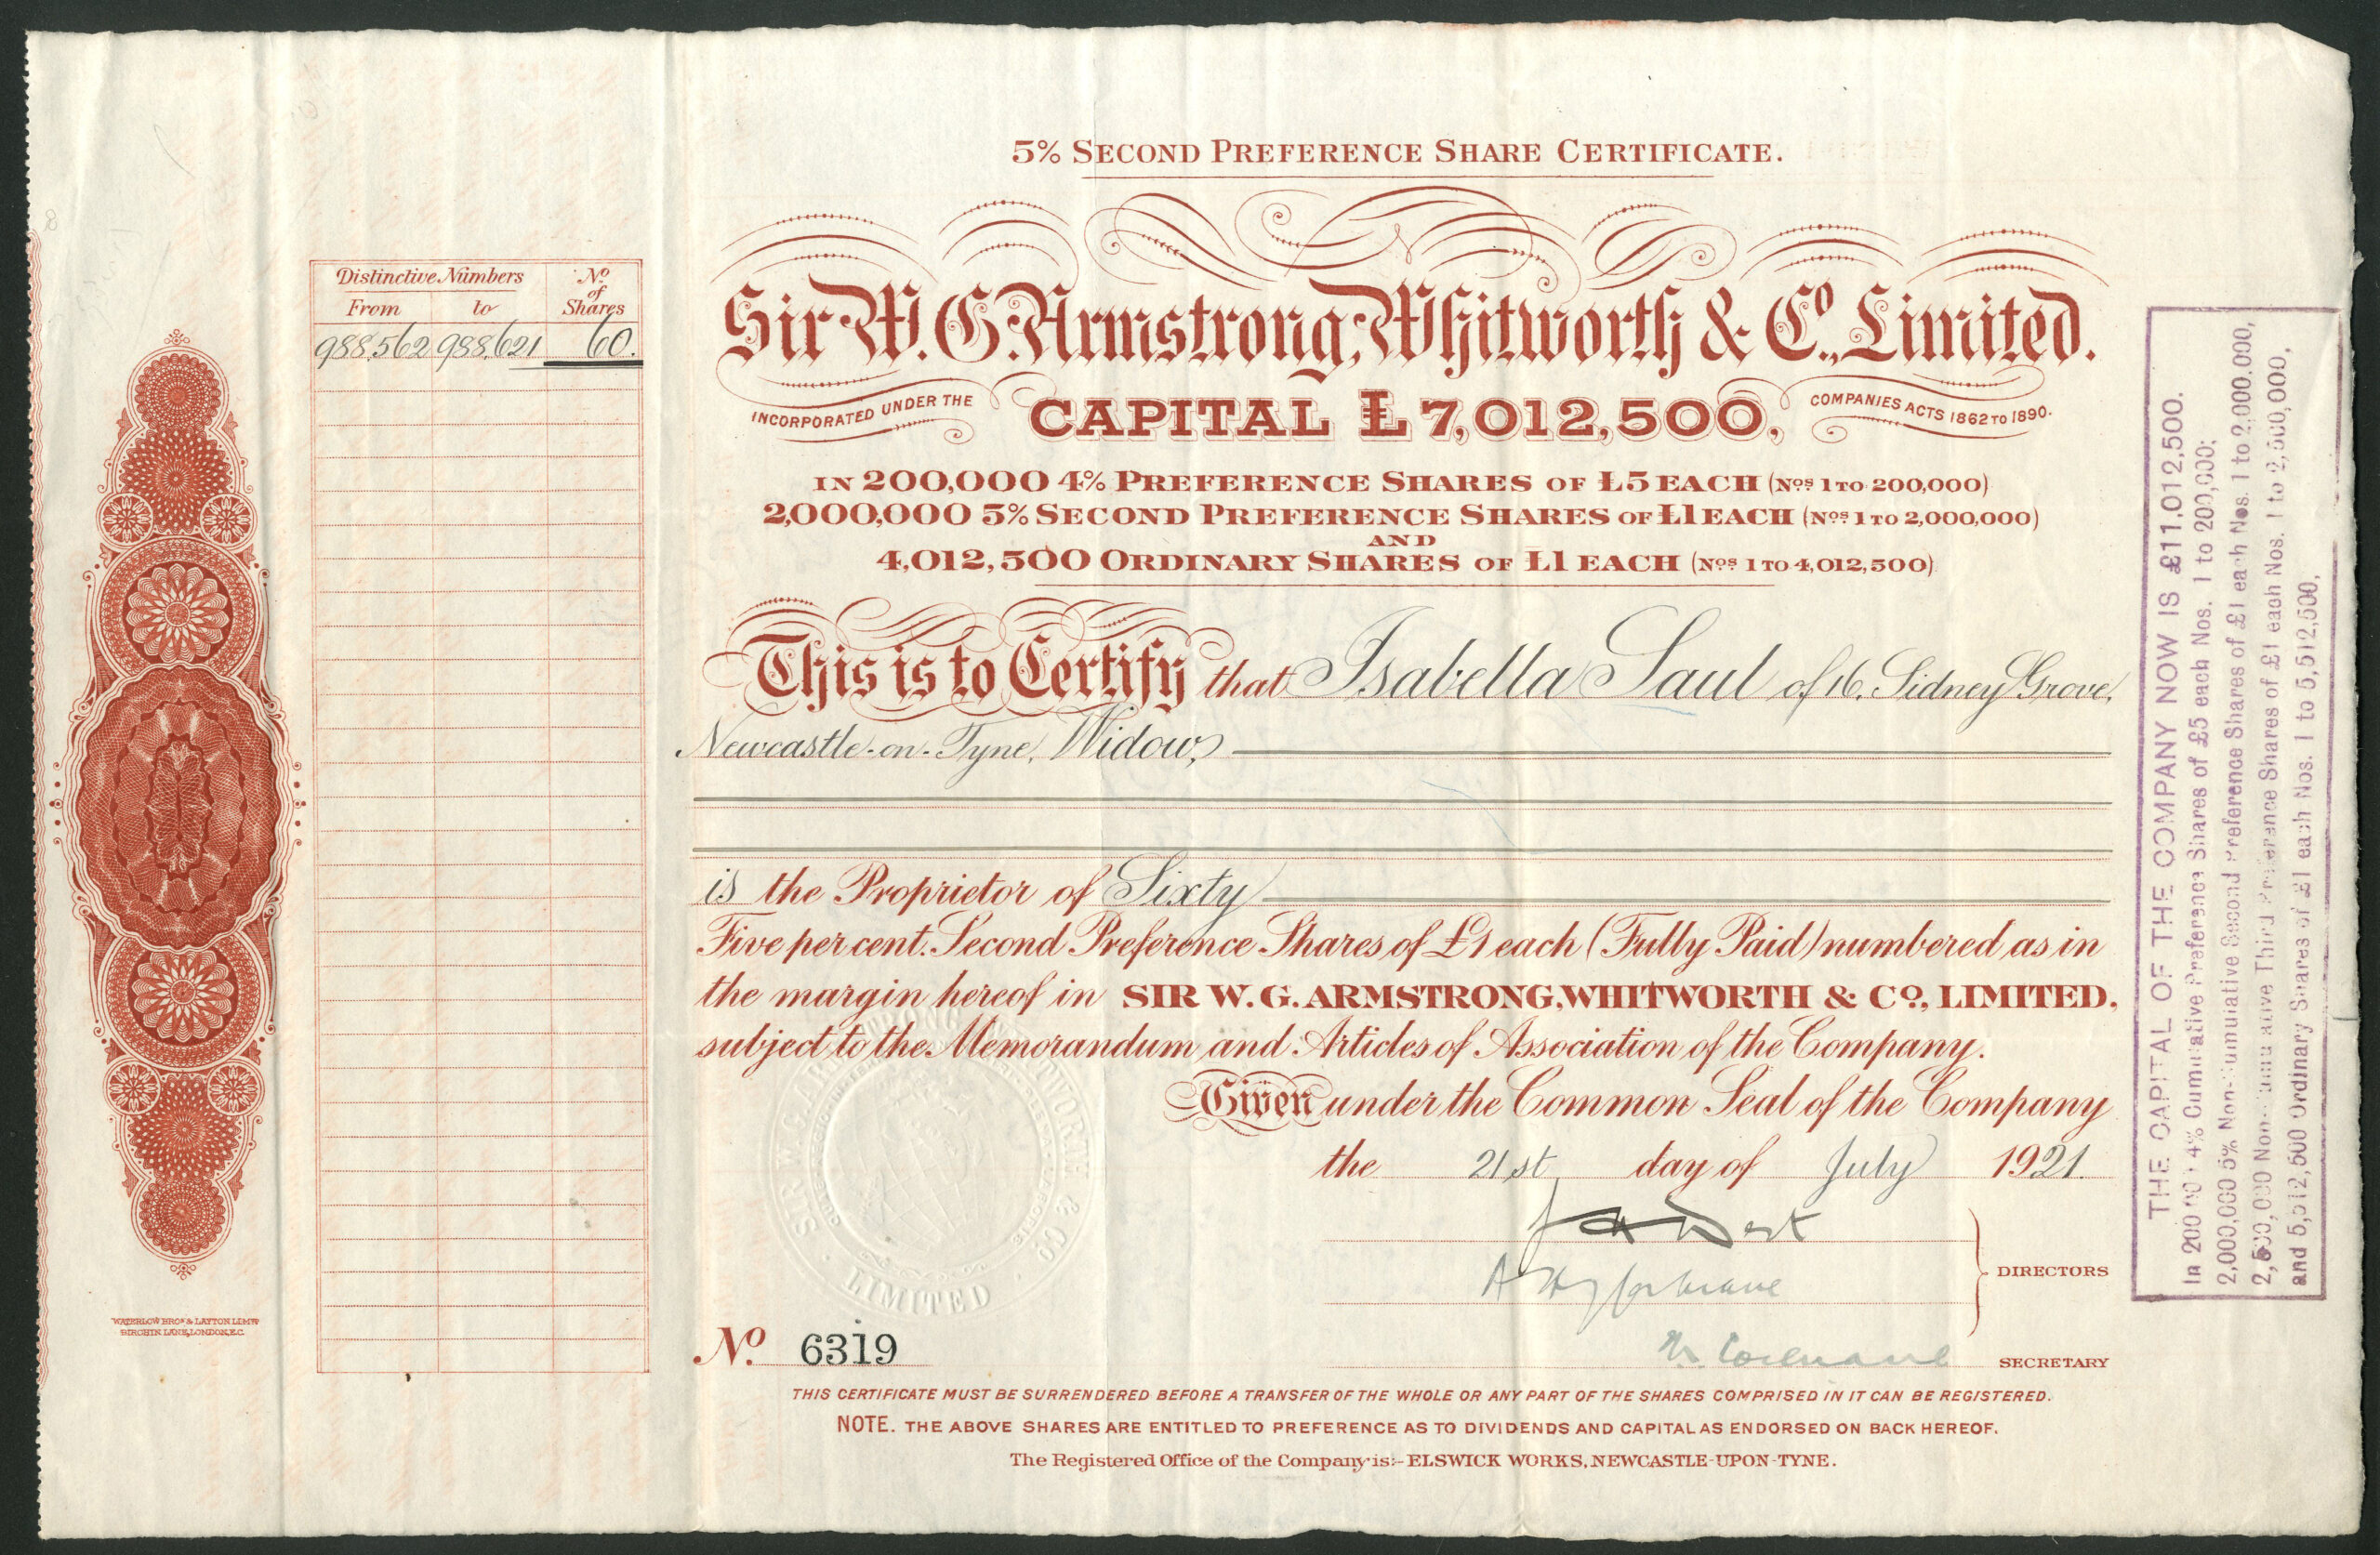 5% SECOND PREFERENCE SHARE CERTIFICATE.
Distinctive Numbers
Nº of Shares
From to
988,562 988,621 60.
Sir W. G. Armstrong, Whitworth & Cº, Limited.
INCORPORATED UNDER THE
CAPITAL £7,012,500,
COMPANIES ACTS 1862 TO 1890.
IN 200,000 4% PREFERENCE SHARES OF £5 EACH (Nºs 1 TO 200,000)
2,000,000 5% SECOND PREFERENCE SHARES OF £1 EACH (Nºs 1 TO 2,000,000)
AND
4,012,500 ORDINARY SHARES OF £1 EACH (Nºs 1 TO 4,012,500)
This is to Certify that Isabella Saul of 16, Sidney Grove,
Newcastle-on-Tyne, Widow,
is the Proprietor of Sixty
Five per cent. Second Preference Shares of £1 each (Fully Paid) numbered as in
the margin hereof in SIR W. G. ARMSTRONG, WHITWORTH & Cº, LIMITED,
subject to the Memorandum and Articles of Association of the Company.
Given under the Common Seal of the Company
the 21st day of July 1921.
DIRECTORS
SIR W. G. ARMSTRONG WHITWORTH & Cº LIMITED
Nº 6319
Cochrane
SECRETARY
THIS CERTIFICATE MUST BE SURRENDERED BEFORE A TRANSFER OF THE WHOLE OR ANY PART OF THE SHARES COMPRISED IN IT CAN BE REGISTERED.
NOTE. THE ABOVE SHARES ARE ENTITLED TO PREFERENCE AS TO DIVIDENDS AND CAPITAL AS ENDORSED ON BACK HEREOF.
The Registered Office of the Company is:- ELSWICK WORKS, NEWCASTLE-UPON-TYNE.
WATERLOW BROS & LAYTON LIMTD
BIRCHIN LANE, LONDON, E.C.
THE CAPITAL OF THE COMPANY NOW IS £11,012,500.
In 200,000 4% Cumulative Preference Shares of £5 each Nos. 1 to 200,000;
2,000,000 5% Non-Cumulative Second Preference Shares of £1 each Nos. 1 to 2,000,000,
2,500,000 Non-Cumulative Third Preference Shares of £1 each Nos. 1 to 2,500,000,
and 5,512,500 Ordinary Shares of £1 each Nos. 1 to 5,512,500.